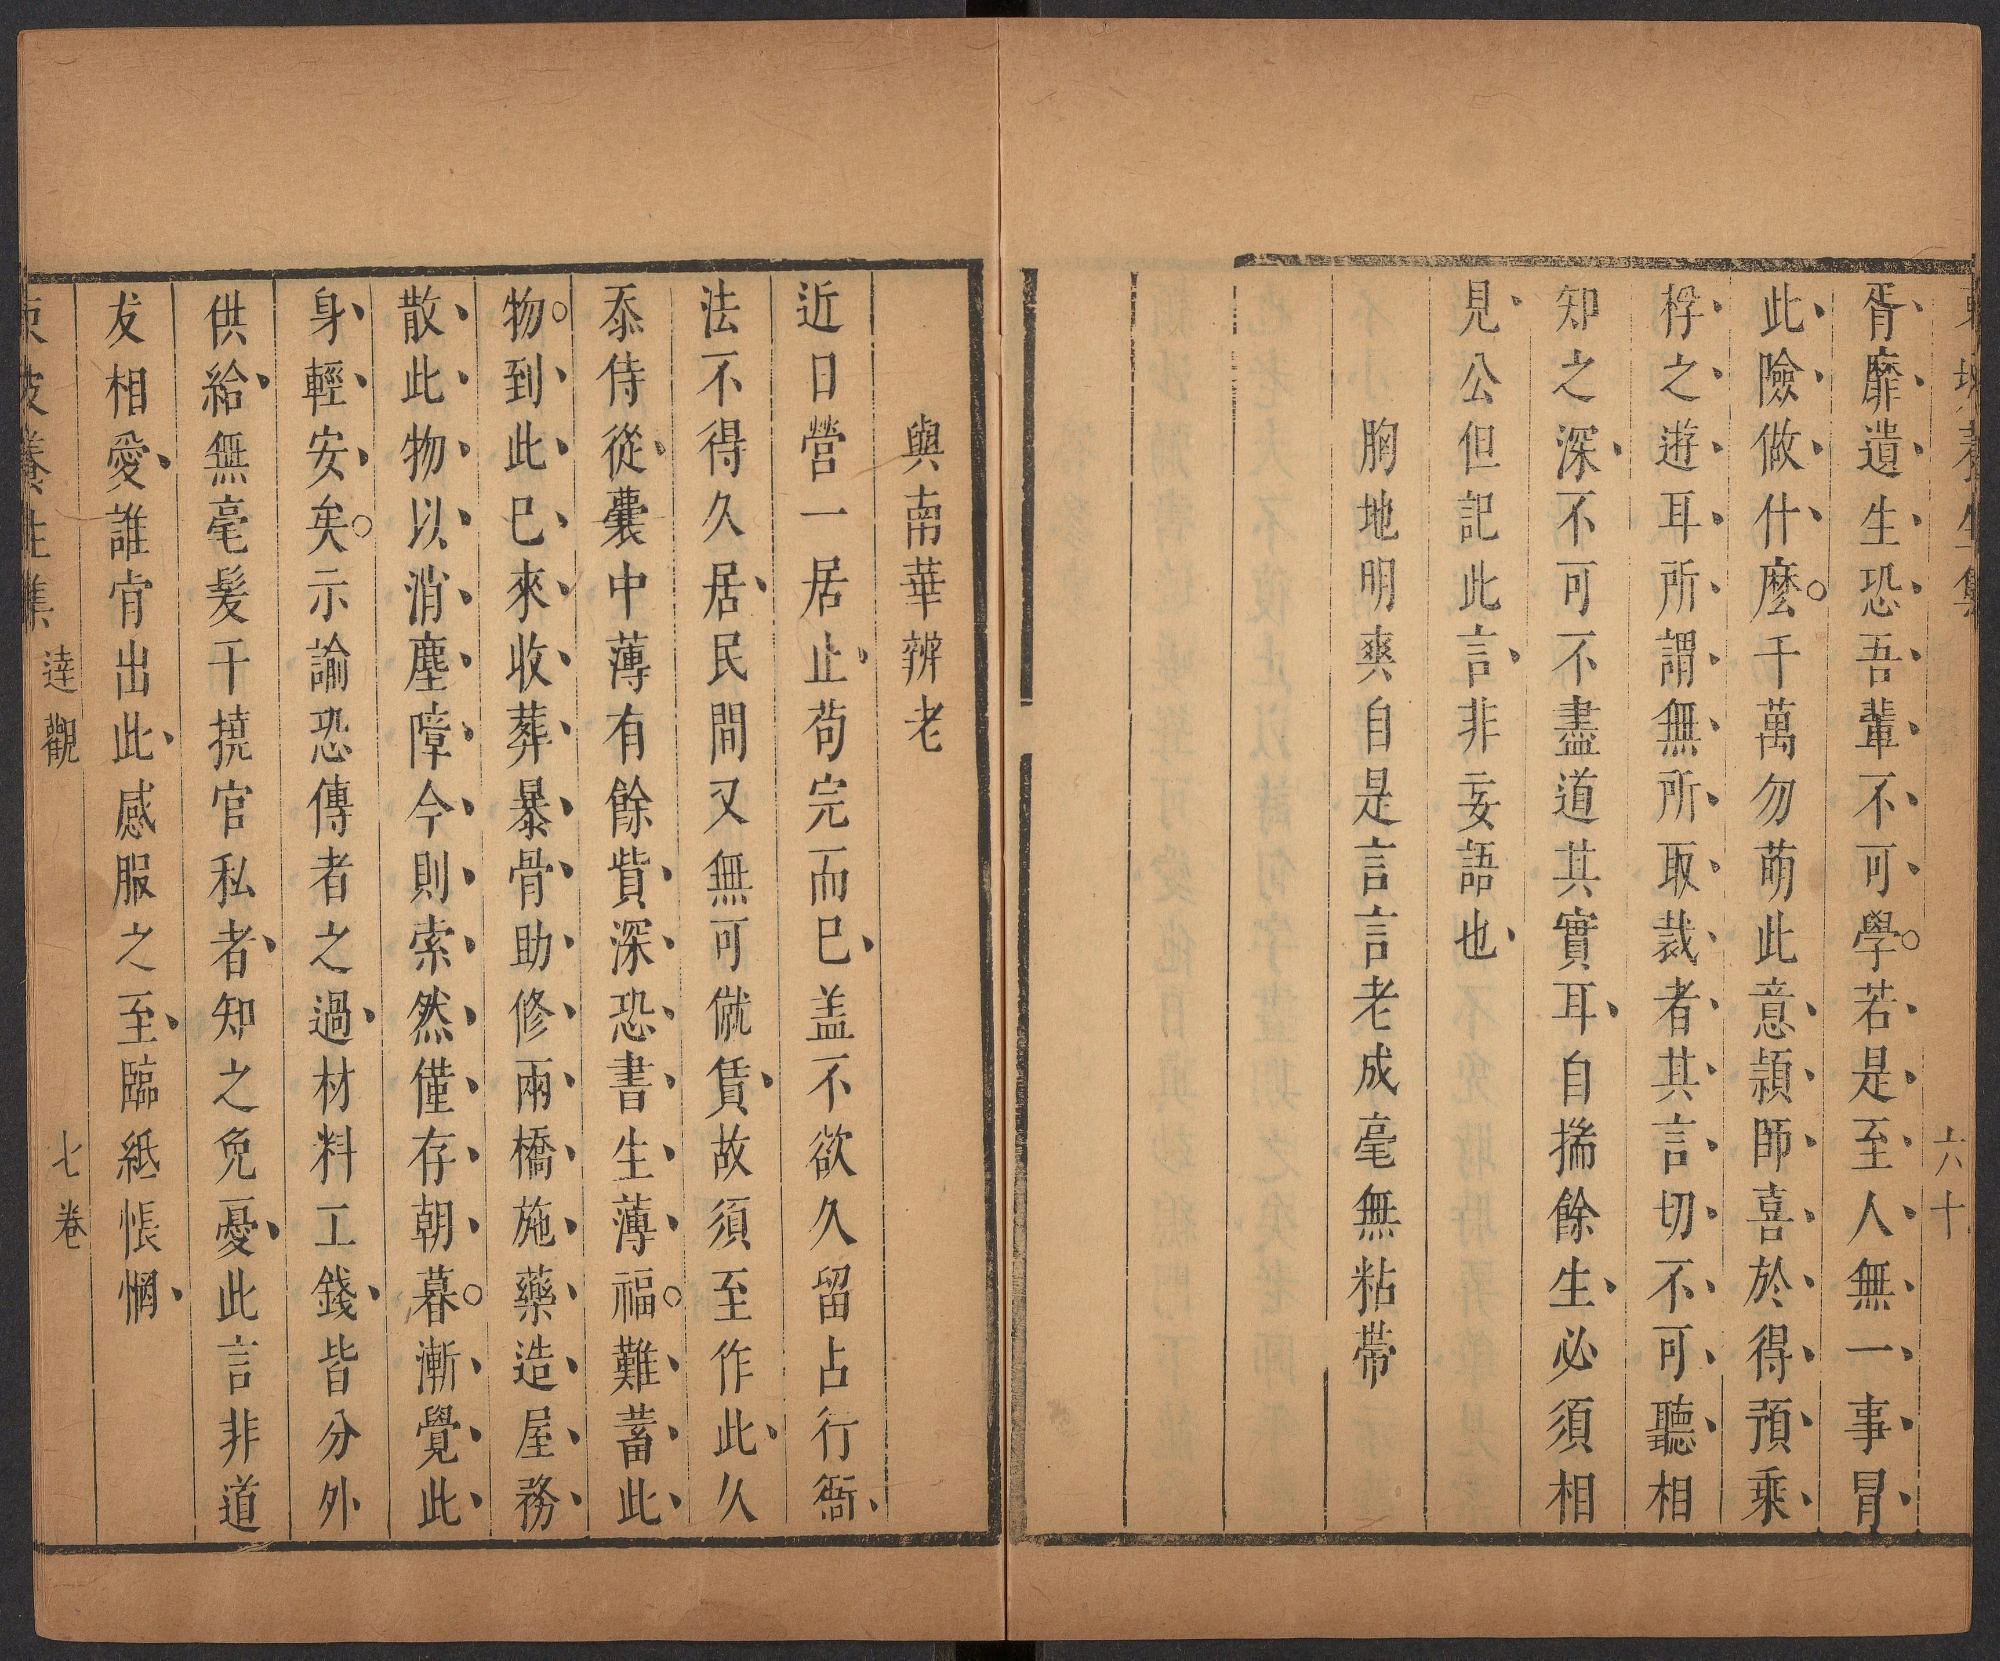 東坡養生集
六十
胥靡遺生恐吾輩不可學若是至人無一事冒
此險做什麽千萬勿萌此意潁師喜於得預乘
桴之遊耳所謂無所取裁者其言切不可聽相
知之深不可不盡道其實耳自揣餘生必須相
見公但記此言非妄語也
胸地明爽自是言言老成毫無粘帶
與南華辨老
近日營一居止苟完而已盖不欲久留占行衙
法不得久居民間又無可僦賃故須至作此久
忝侍從囊中薄有餘貲深恐書生薄福難蓄此
物到此已來收葬暴骨助修兩橋施藥造屋務
散此物以消塵障今則索然僅存朝暮漸覺此
身輕安矣示諭恐傳者之過材料工錢皆分外
供給無毫髮干撓官私者知之免憂此言非道
友相愛誰肯出此感服之至臨紙悵惘
東坡養生集 達觀 七卷